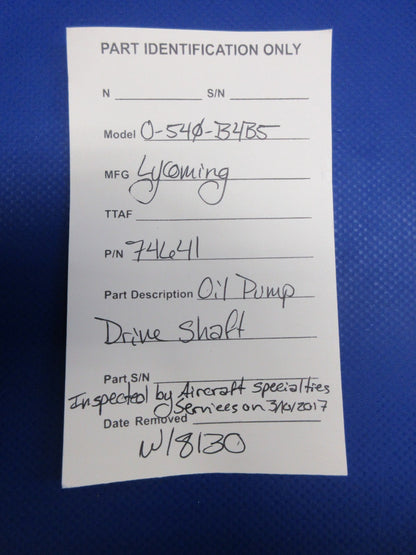 PART IDENTIFICATION ONLY
N ____________ S/N ____________
Model O-540-B4B5
MFG Lycoming
TTAF ____________
P/N 74641
Part Description Oil Pump
Drive Shaft
Part S/N ____________
Inspected by Aircraft Specialties
Services on 3/10/2017
Date Removed ____________
W/8130